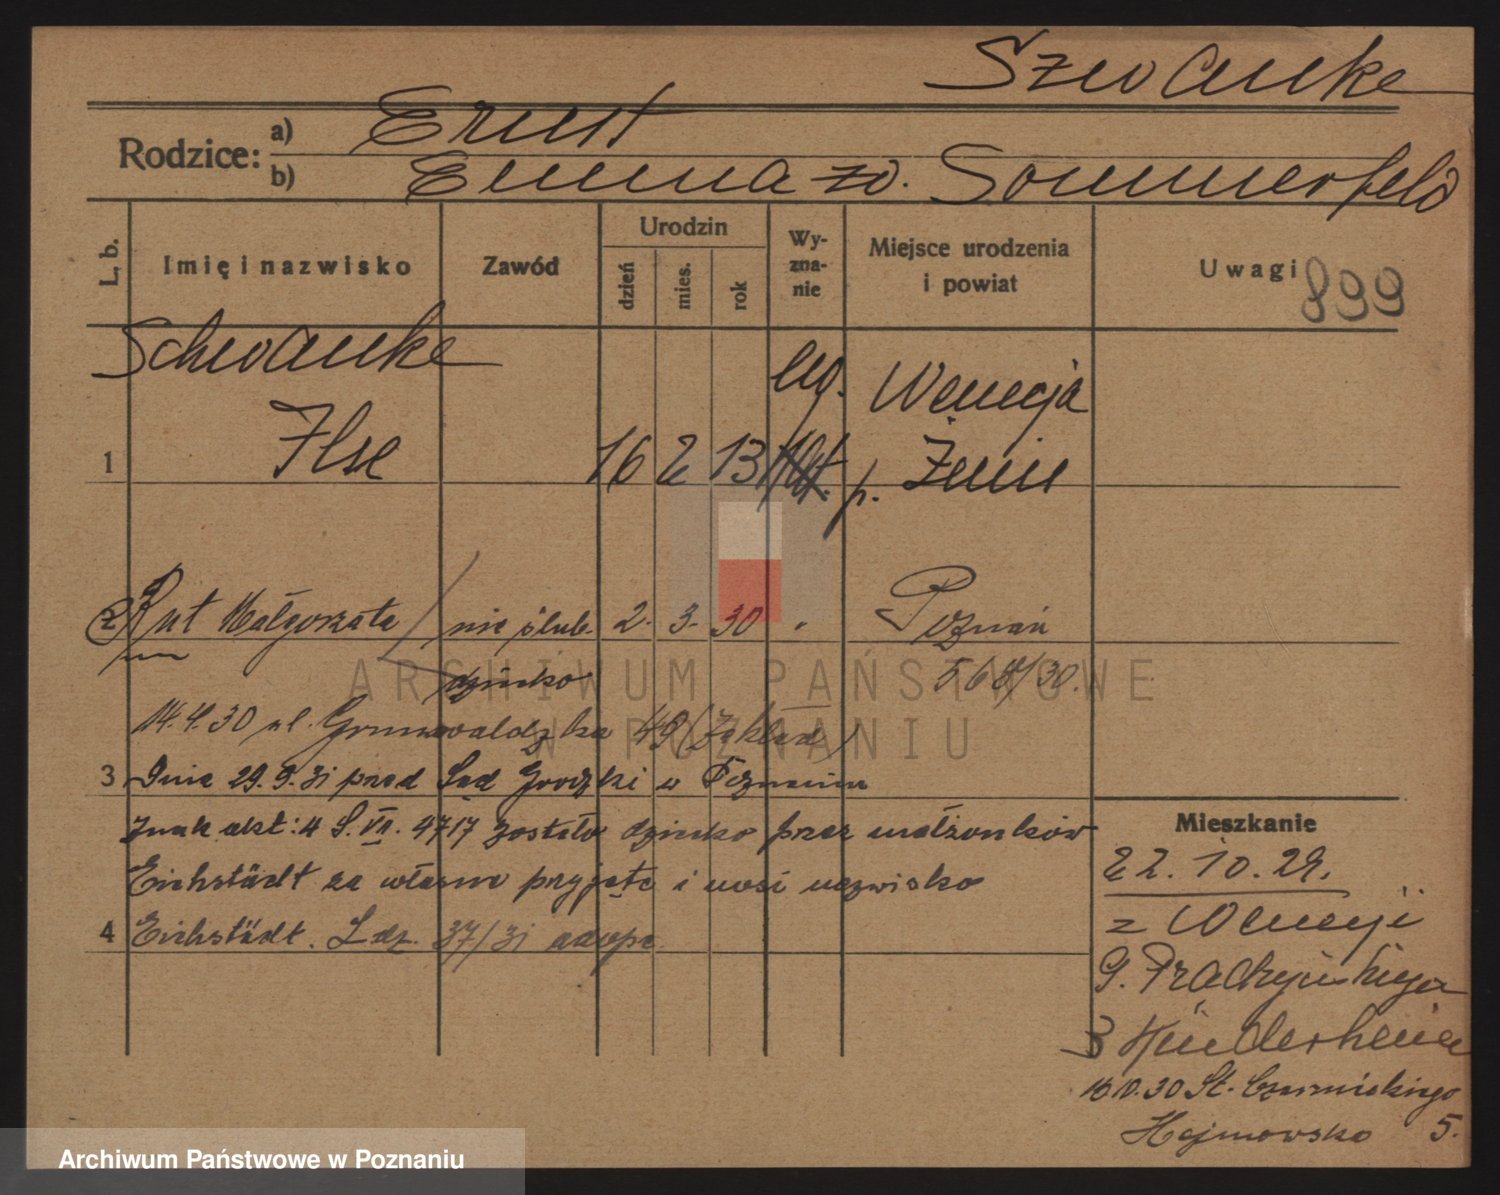 Szwanke
Rodzice:
a) Ernst
b) Emma zd. Sommerfeld
L. b.
Imię i nazwisko
Zawód
Urodzin
dzień
mies.
rok
Wy-
zna-
nie
Miejsce urodzenia
i powiat
Uwagi
899
Schwanke
ewg. Wenecja
1 Ilse 16 2 13 p. Żnin
2 Rut Małgorzata nie ślub. 2. 3. 30 " Poznań
dziecko 568/30.
14.4.30 ul. Grunwaldzka 49 (Zakład)
3 Dnia 29.9.31 przed Sąd Grodzki w Poznaniu
Znak akt: 4 S. VII. 4717 zostało dziecko przez małżonków
Eichstädt za własne przyjęte i nosi nazwisko
4 Eichstädt. Ldz. 37/31 adopc.
Mieszkanie
22.10.29.
z Wenecji
G. Pradzyńskiego
3 Kinderheim
St. Czarnieckiego
Hajmowska 5.
ARCHIWUM PAŃSTWOWE
W POZNANIU
Archiwum Państwowe w Poznaniu